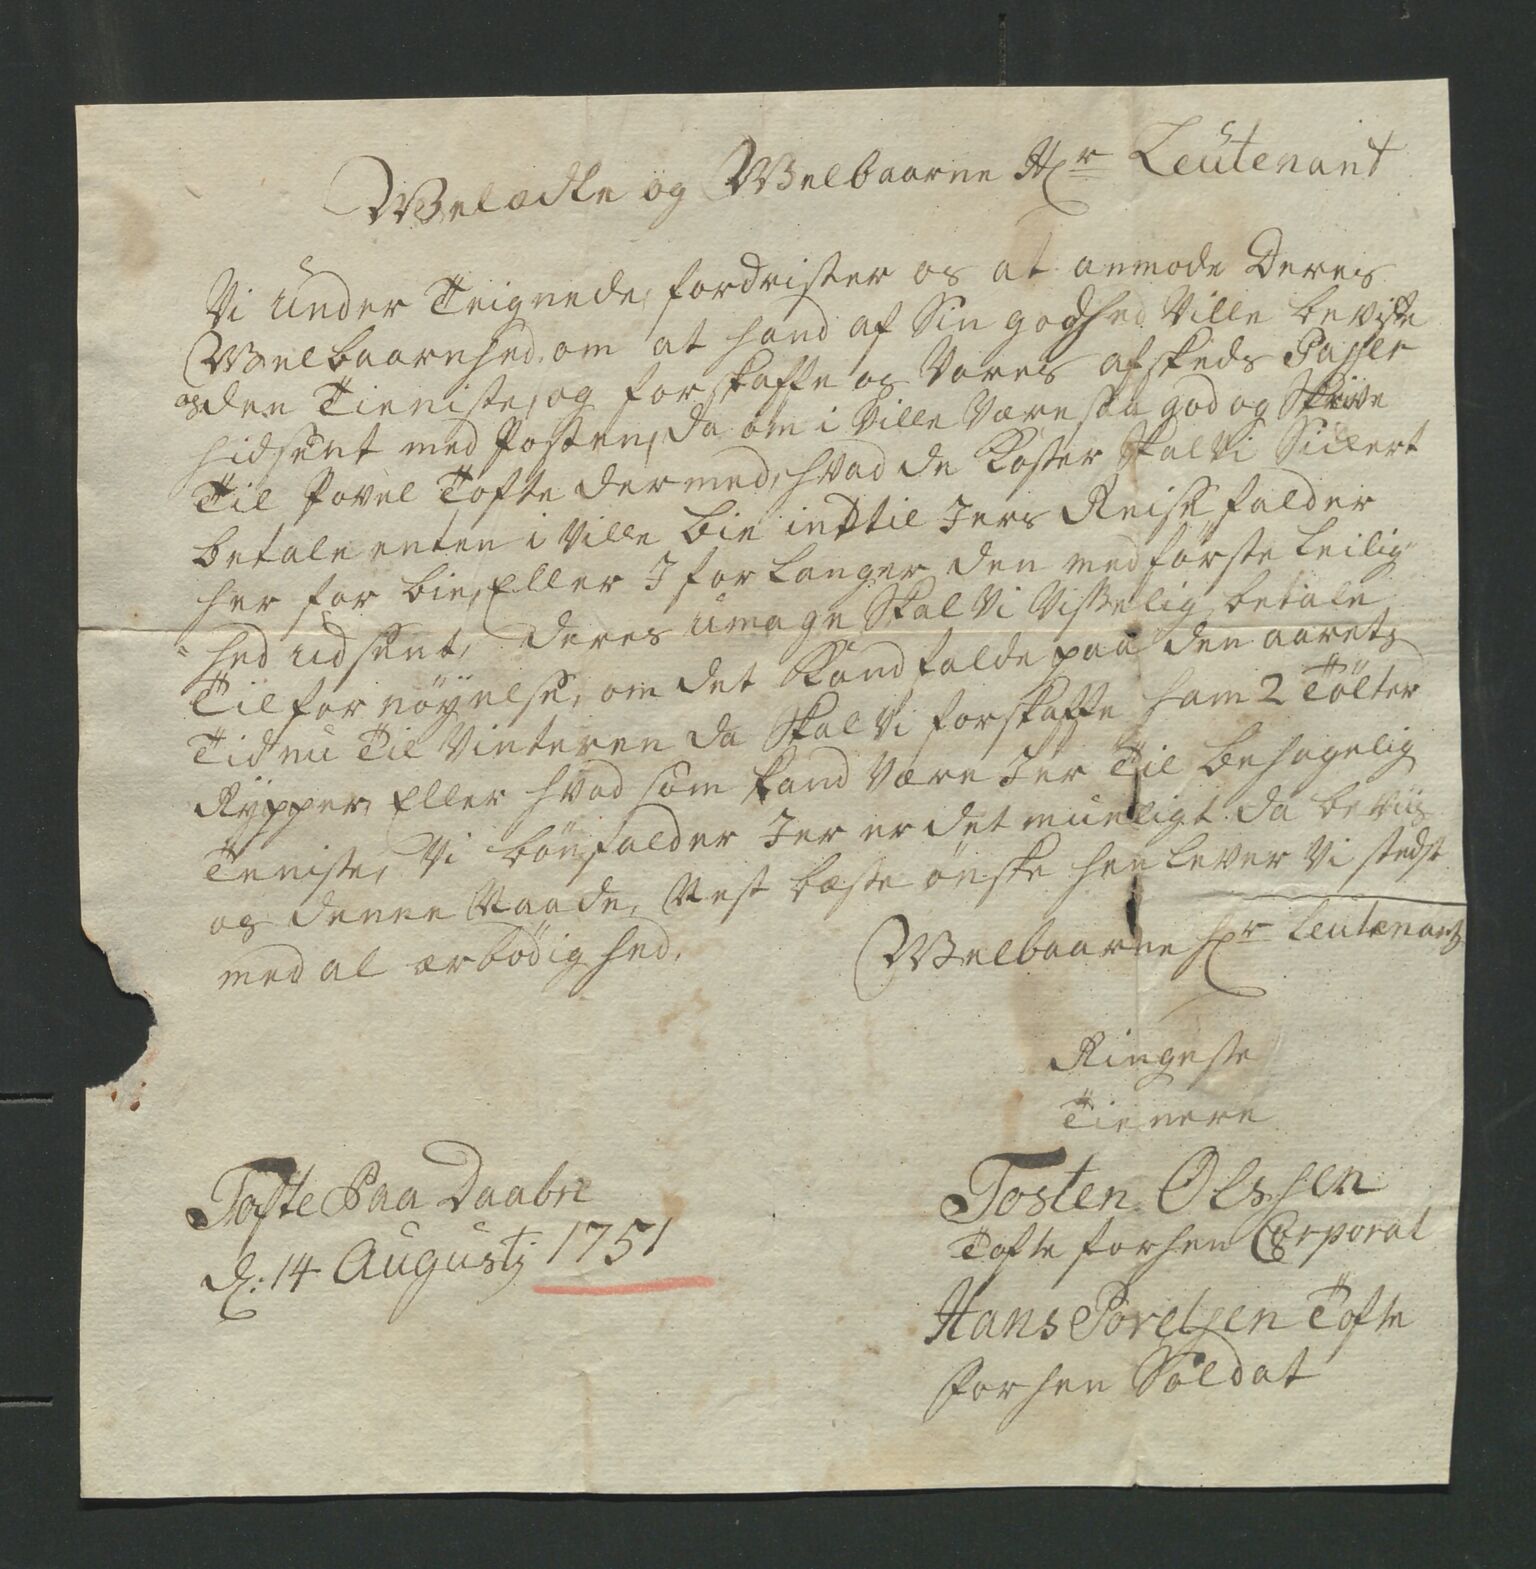 Welædle og Welbaarne Hr Leutenant
Vi under Teignede, fordrister os at anmode Deres
Welbaarnhed, om at hand af Sin godhed Ville beviste
os den Tieniste, og forskaffe os Vores afskeds Passer
hidsent med Posten, da om i Ville Være saa god og Skrive
Til Povel Tofte dermed, hvad de Koster Skal Vi Sickert
betale enten i Ville bie indtil Jers Reise falder
her for bie, Eller J forlanger den med første Leilig
hed udsent, deres umage Skal Vi Visselig betale
Til fornøyelse, om det Kand falde paa den aarets
Tid nu Til Vinteren da Skal Vi forskaffe ham 2 Tølter
Rypper, Eller hvad som kand Være Jer Til behagelig
Teniste, Vi bønfalder Jer er det mueligt da beviis
os denne Naade, Nest beste ønske henlever Vi stedst
med al ærbødighed,
Welbaarne Hr Leutenants
Ringeste
Tienere
Tofte Paa Daabre
d: 14 Augustj 1751
Tosten Olssen
Tofte forhen Corporal
Hans Povelsen Tofte
forhen Soldat